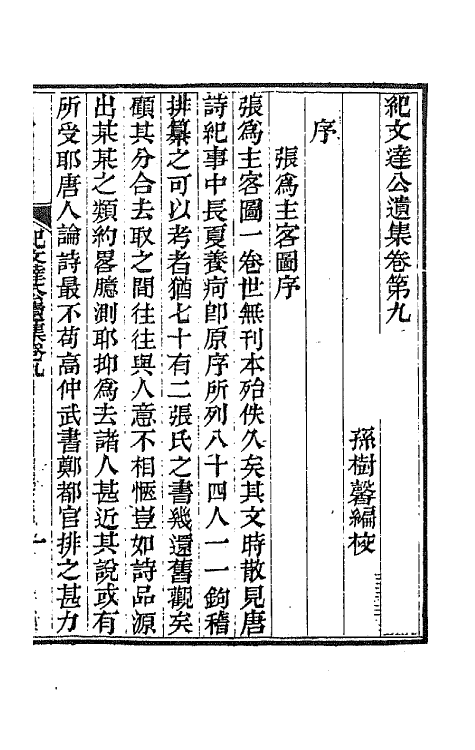 紀文達公遺集卷第九
孫樹馨編校
序
張爲主客圖序
張爲主客圖一卷世無刊本殆佚久矣其文時散見唐
詩紀事中長夏養疴卽原序所列八十四人一一鉤稽
排纂之可以考者猶七十有二張氏之書幾還舊觀矣
顧其分合去取之間往往與人意不相愜豈如詩品源
出某某之類約畧臆測耶抑爲去諸人甚近其說或有
所受耶唐人論詩最不苟高仲武書鄭都官排之甚力
紀文達公遺集卷九
一